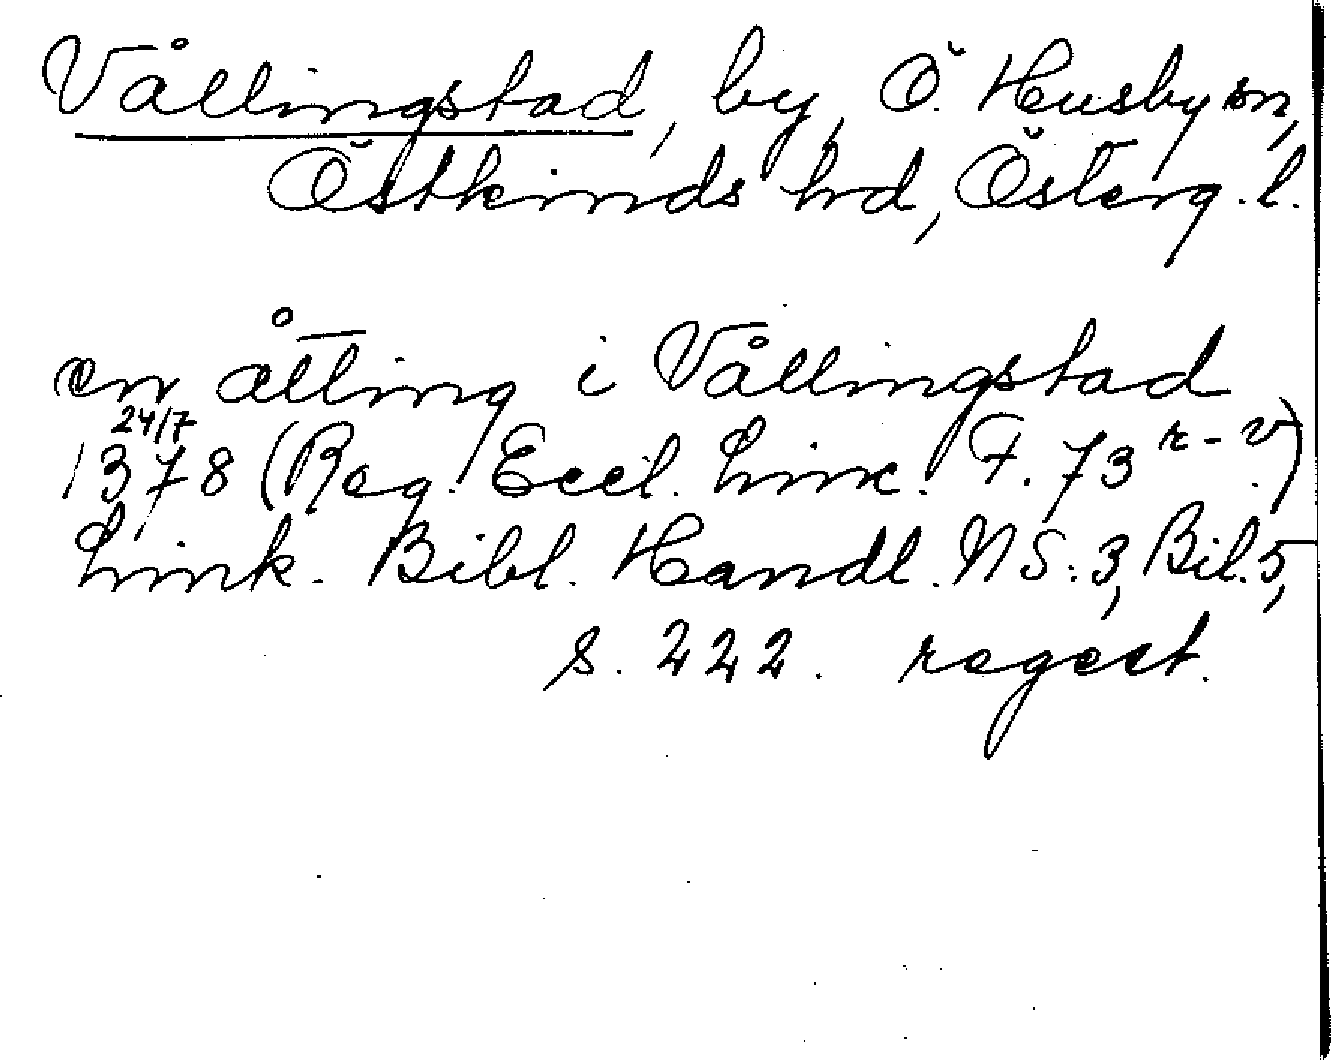 Vållingstad, by, Ö. Husby sn,
Östkinds hd, Österg. l.
en åtting i Vållingstad
24/7
1378 (Reg. Eccl. Linc. F. 73 r-v)
Link. Bibl. Handl. NS: 3, Bil. 5,
s. 222. regest.